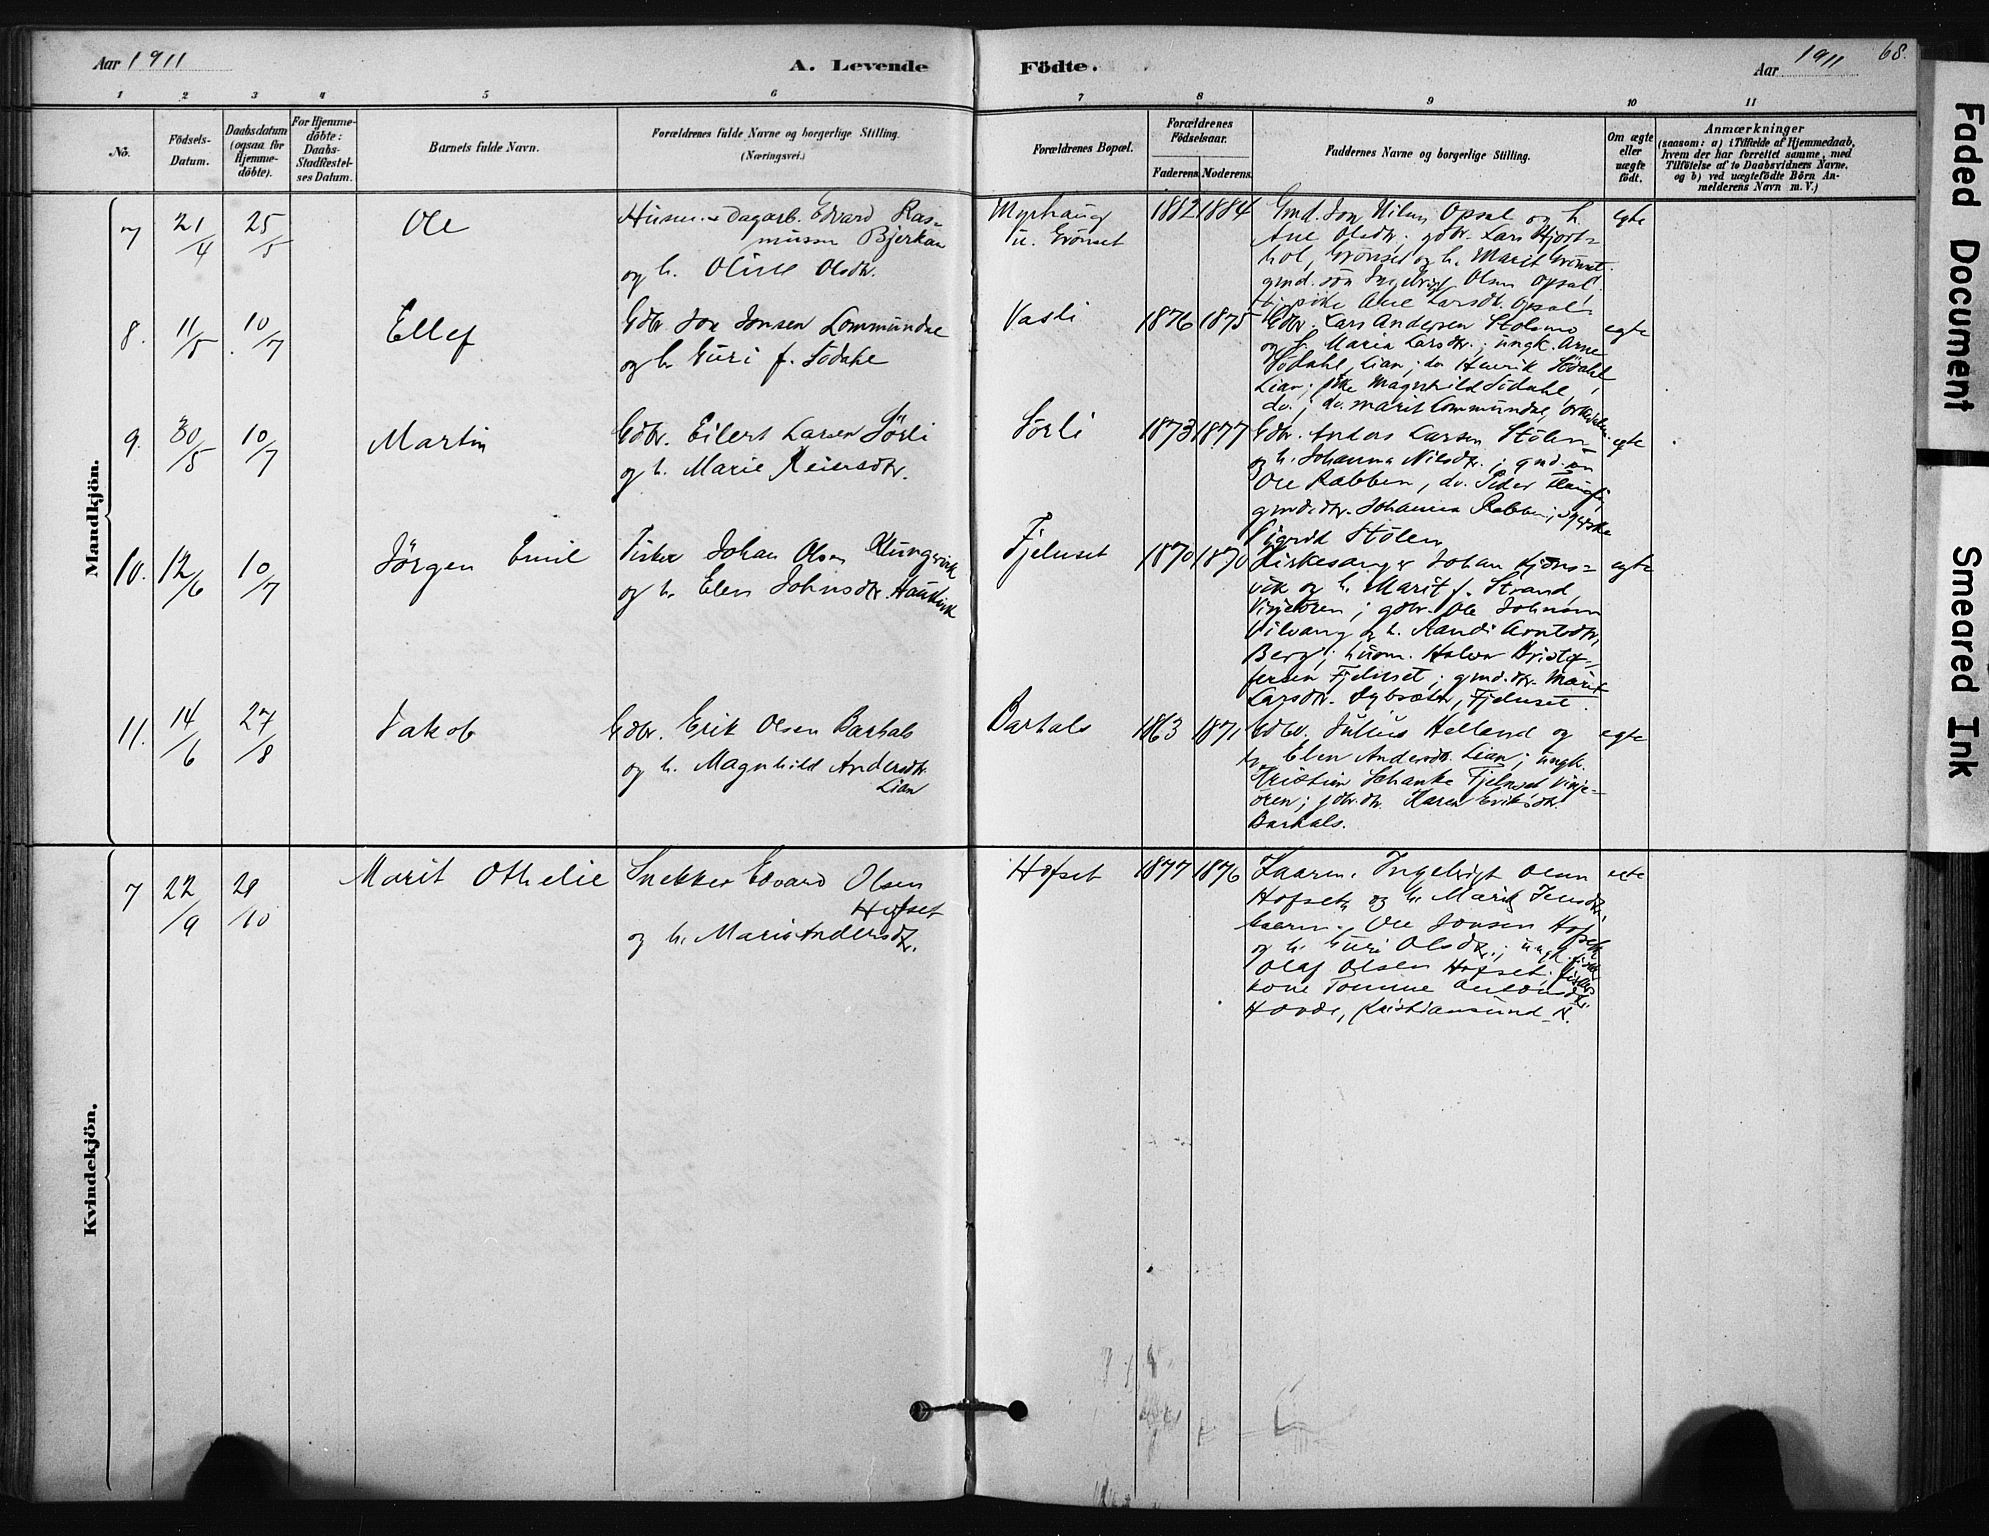 Aar 1911
A. Levende
Födte.
Aar 1911
68.
1 2 3 4 5 6 7 8 9 10 11
No.
Födsels-
Datum.
Daabsdatum
(ogsaa for
Hjemme-
döbte).
For Hjemme-
döbte:
Daabs-
Stadfæstel-
ses Datum.
Barnets fulde Navn.
Forældrenes fulde Navne og borgerlige Stilling.
(Næringsvei.)
Forældrenes Bopæl.
Forældrenes
Födselsaar.
Faderens. Moderens.
Faddernes Navne og borgerlige Stilling.
Om ægte
eller
uægte
födt.
Anmærkninger
(saasom: a) i Tilfælde af Hjemmedaab,
hvem der har forrettet samme, med
Tilföielse af to Daabsvidners Navne,
og b) ved uægtefödte Börn An-
melderens Navn m. V.)
Mandkjön.
7 21/4 25/5 Ole
Husm. Dagarb. Edvard Ras-
mussen Bjerkan
og h. Oline Olsdtr.
Myrhaug
u. Grönset
1882 1884
Gmd. Jon Nilsen Opsal og h.
Ane Olsdtr. gdbr. Lars Hjort-
hol, Grönset og h. Marit Grönset.
gmd. sön Ingebrigt Olsen Opsal
pike Ane Larsdtr. Opsal.
egte
8. 11/5 10/7 Ellef
Gdbr. Jon Jonsen Lommundal
og h. Guri f. Södahl
Vasli
1876 1875
Gdbr. Lars Andersen Stolsmo
og h. Maria Larsdtr.; ungk. Arne
Södahl, Lian; do Henrik Södahl
Lian; pike Magnhild Södahl,
do.; do. Marit Lommundal, Orkedalen.
egte
9. 30/5 10/7 Martin
Gdbr. Eilert Larsen Sörli
og h. Marie Reiersdtr.
Sörli
1873 1877
Gdbr. Anders Larsen Stölen
og h. Johanna Nilsdtr.; gmd. sön
Ole Rabben, do. Peder
gmd.dtr. Johanna Rabben; syerske
Sigrid Stölen
egte
10. 12/6 10/7 Jörgen Emil
Fisker Johan Olsen Klungervik
og h. Elen Johnsdtr. Haukvik
Fjeluset
1870 1870
Kirkesanger Johan Kjöns-
vik og h. Marit f. Strand
Vinjeören; gdbr. Ole Johnsen
Vilvang og h. Randi Arntsdtr.
Berg; husm. Halvor Kristof-
fersen Fjeluset; gmd.dtr. Marit
Larsdtr. Dybsæter, Fjeluset.
egte
11. 14/6 27/8 Jakob
Gdbr. Erik Olsen Barhals
og h. Magnhild Andersdtr.
Lian
Barhals
1863 1871
Gdbr. Julius Helland og
h. Elen Andersdtr. Lian; ungk.
Kristian Schanke Fjeluset Vinje-
ören; gdbr.dtr. Karen Eriksdtr.
Barhals.
egte
Kvindekjön.
7 22/9 29/10 Marit Othelie
Snekker Edvard Olsen
Hofset
og h. Marie Andersdtr.
Hofset
1877 1876
Kaarm. Ingebrigt Olsen
Hofset og h. Marit Jensdtr.
kaarm. Ole Jonsen Hofset
og h. Guri Olsdtr.; ungk. fisker
Olaf Olsen Hofset; fiskers
kone Tomine Antonsdtr.
Hovde, Kristiansund N.
egte
Faded Document
Smeared Ink